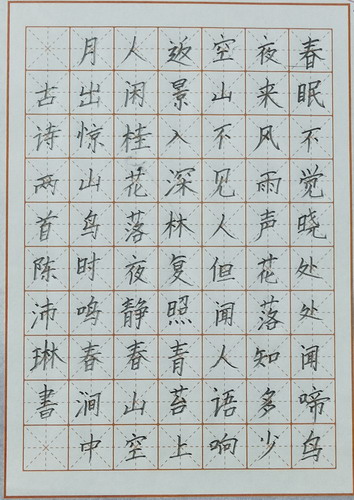 春眠不觉晓处处闻啼鸟
夜来风雨声花落知多少
空山不见人但闻人语响
返景入深林复照青苔上
人闲桂花落夜静春山空
月出惊山鸟时鸣春涧中
古诗两首陈沛琳書